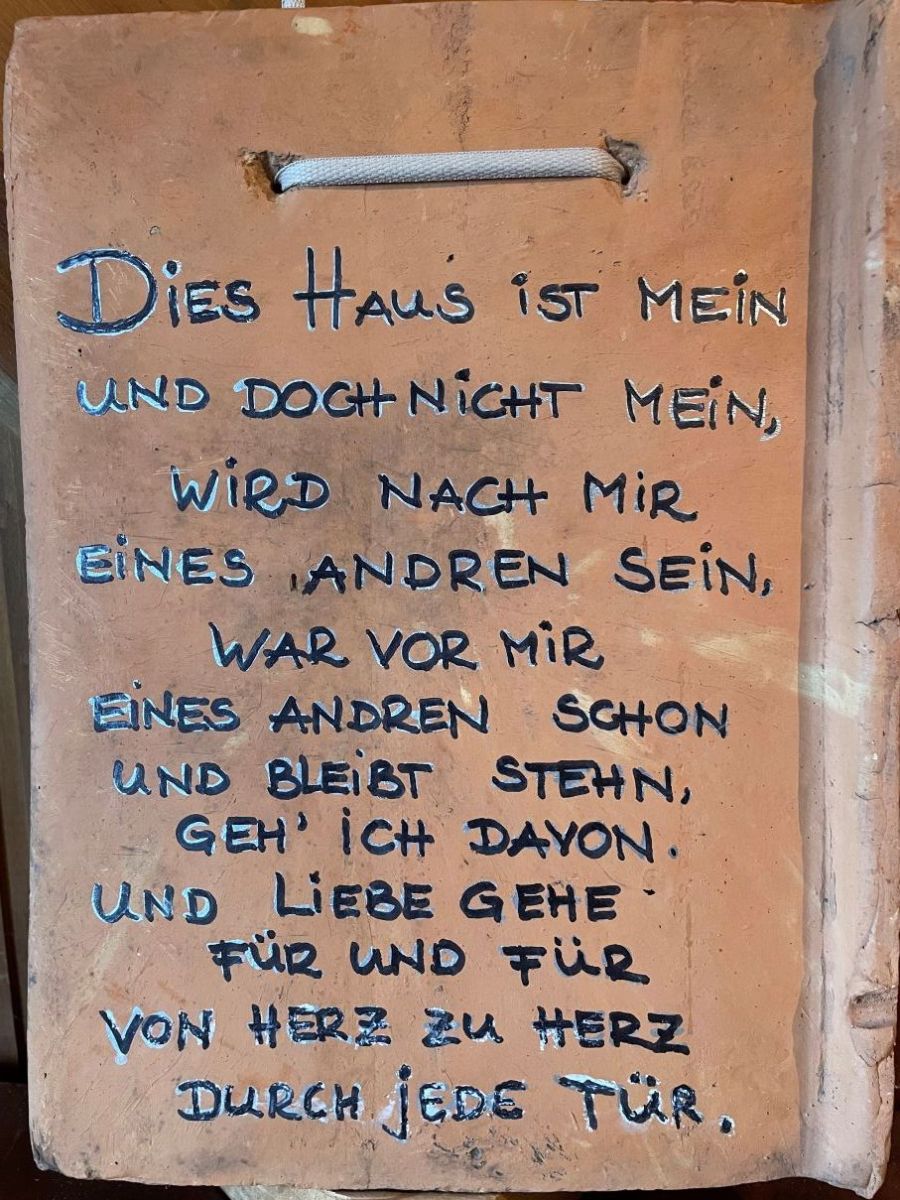 Dies Haus ist mein
und doch nicht mein,
wird nach mir
eines andren sein,
war vor mir
eines andren schon
und bleibt stehn,
geh' ich davon.
und Liebe gehe
für und für
von Herz zu Herz
durch jede Tür.